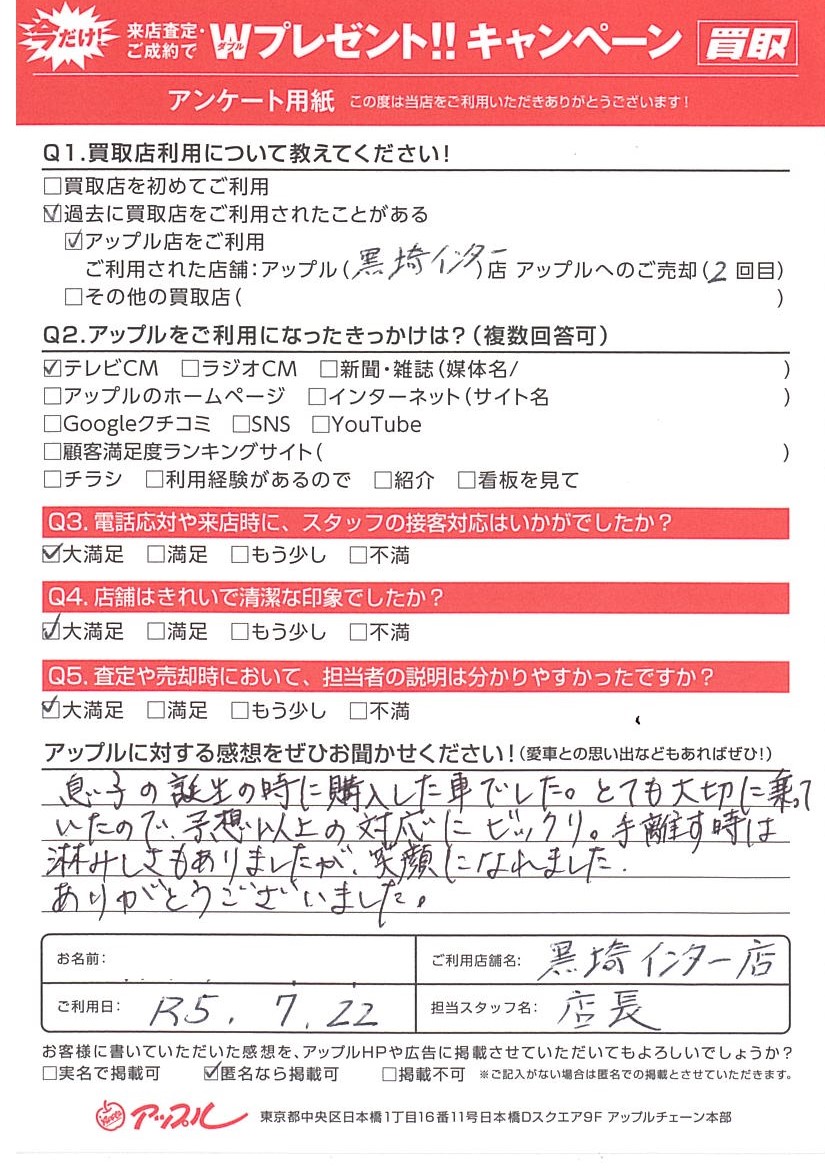 今だけ! 来店査定・ご成約で Wダブルプレゼント!! キャンペーン 買取
アンケート用紙 この度は当店をご利用いただきありがとうございます!
Q1.買取店利用について教えてください!
□買取店を初めてご利用
☑過去に買取店をご利用されたことがある
☑アップル店をご利用
ご利用された店舗:アップル(黒埼インター)店 アップルへのご売却(2回目)
□その他の買取店( )
Q2.アップルをご利用になったきっかけは?(複数回答可)
☑テレビCM □ラジオCM □新聞・雑誌(媒体名/ )
□アップルのホームページ □インターネット(サイト名 )
□Googleクチコミ □SNS □YouTube
□顧客満足度ランキングサイト( )
□チラシ □利用経験があるので □紹介 □看板を見て
Q3.電話応対や来店時に、スタッフの接客対応はいかがでしたか?
☑大満足 □満足 □もう少し □不満
Q4.店舗はきれいで清潔な印象でしたか?
☑大満足 □満足 □もう少し □不満
Q5.査定や売却時において、担当者の説明は分かりやすかったですか?
☑大満足 □満足 □もう少し □不満
アップルに対する感想をぜひお聞かせください!(愛車との思い出などもあればぜひ!)
息子の誕生の時に購入した車でした。とても大切に乗って
いたので、予想以上の対応にビックリ。手離す時は
淋みしさもありましたが、笑顔になれました.
ありがとうございました。
お名前: ご利用店舗名: 黒埼インター店
ご利用日: R5. 7. 22 担当スタッフ名: 店長
お客様に書いていただいた感想を、アップルHPや広告に掲載させていただいてもよろしいでしょうか?
□実名で掲載可 ☑匿名なら掲載可 □掲載不可 ※ご記入がない場合は匿名での掲載とさせていただきます。
アップル 東京都中央区日本橋1丁目16番11号日本橋Dスクエア9F アップルチェーン本部